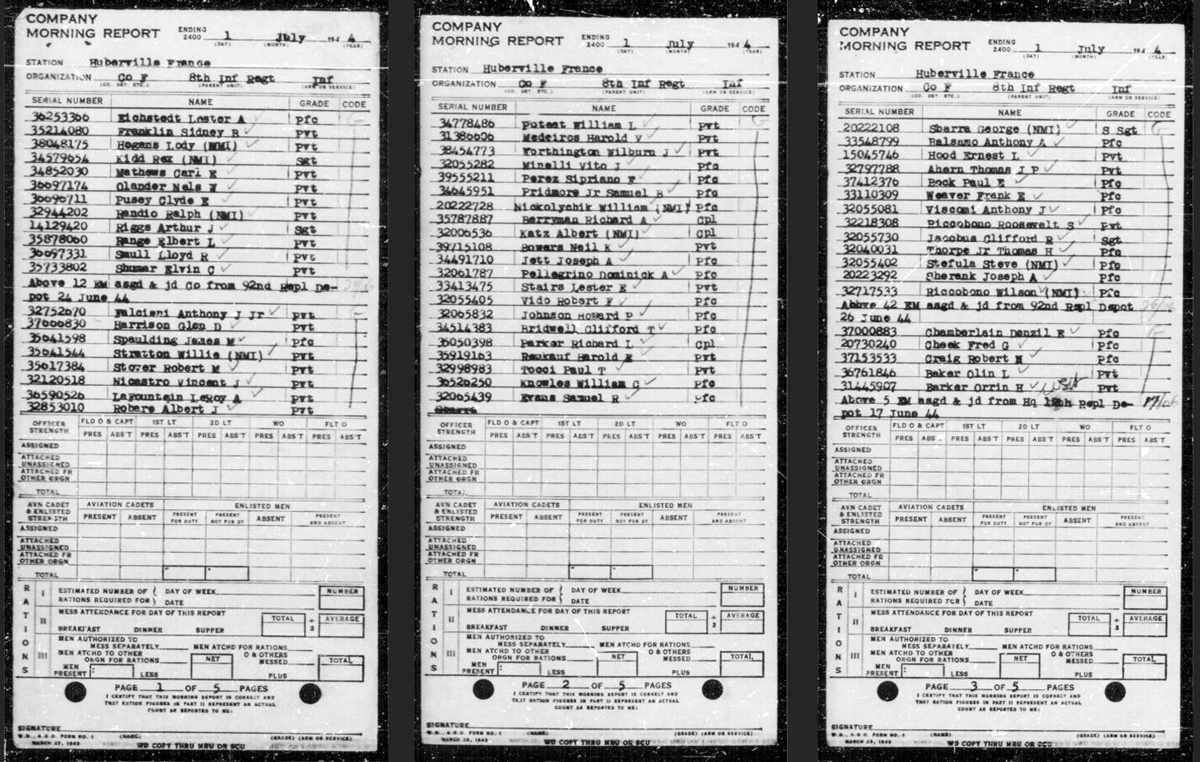 COMPANY
MORNING REPORT
ENDING 2400 1 July 194 4
(DAY) (MONTH) (YEAR)
STATION Huberville France
ORGANIZATION Co F 8th Inf Regt Inf
(CO. DET. ETC.) (PARENT UNIT) (ARM OR SERVICE)
SERIAL NUMBER NAME GRADE CODE
36253366 Eichstedt Lester A Pfc
35214080 Franklin Sidney R Pvt
38048175 Hogans Lody (NMI) Pvt
34579654 Kidd Rex (NMI) Sgt
34852030 Mathews Carl E Pvt
36697174 Olander Nels N Pvt
36696711 Pusey Clyde E Pvt
32944202 Randio Ralph (NMI) Pvt
14129420 Riggs Arthur J Sgt
35878060 Range Elbert L Pvt
36697331 Smull Lloyd R Pvt
35733802 Shumar Elvin C Pvt
Above 12 EM asgd & jd Co from 92nd Repl De-
pot 24 June 44
32752670 Falciani Anthony J Jr Pvt
37666830 Harrison Glen D Pvt
35041598 Spaulding James M Pfc
35041544 Stratton Willie (NMI) Pvt
35617384 Stover Robert M Pvt
32120518 Nicastro Vincent J Pvt
36590526 LaFountain LeRoy A Pvt
32853010 Robare Albert J Pvt
OFFICER STRENGTH FLD O & CAPT 1ST LT 2D LT WO FLT O
PRES ABS'T PRES ABS'T PRES ABS'T PRES ABS'T PRES ABS'T
ASSIGNED
ATTACHED UNASSIGNED
ATTACHED FR OTHER ORGN
TOTAL
AVN CADET & ENLISTED STRENGTH AVIATION CADETS ENLISTED MEN
PRESENT ABSENT PRESENT FOR DUTY PRESENT NOT FOR DY ABSENT PRESENT AND ABSENT
ASSIGNED
ATTACHED UNASSIGNED
ATTACHED FR OTHER ORGN
TOTAL
RATIONS
I ESTIMATED NUMBER OF RATIONS REQUIRED FOR DAY OF WEEK DATE NUMBER
II MESS ATTENDANCE FOR DAY OF THIS REPORT TOTAL ÷ 3 AVERAGE
BREAKFAST DINNER SUPPER
III MEN AUTHORIZED TO MESS SEPARATELY MEN ATCHD FOR RATIONS
MEN ATCHD TO OTHER ORGN FOR RATIONS NET O & OTHERS MESSED TOTAL
MEN PRESENT LESS PLUS
PAGE 1 OF 5 PAGES
I CERTIFY THAT THIS MORNING REPORT IS CORRECT AND
THAT RATION FIGURES IN PART II REPRESENT AN ACTUAL
COUNT AS REPORTED TO ME:
SIGNATURE
W.D., A.G.O. FORM NO. 1 (NAME) (GRADE) (ARM OR SERVICE)
MARCH 23, 1943 WD COPY THRU MRU OR SCU
COMPANY
MORNING REPORT
ENDING 2400 1 July 194 4
(DAY) (MONTH) (YEAR)
STATION Huberville France
ORGANIZATION Co F 8th Inf Regt Inf
(CO. DET. ETC.) (PARENT UNIT) (ARM OR SERVICE)
SERIAL NUMBER NAME GRADE CODE
34778486 Poteat William L Pvt
31386606 Medeiros Harold V Pvt
38454773 Worthington Wilburn J Pvt
32055282 Minelli Vito J Pfc
39555211 Perez Sipriano F Pfc
34645951 Pridmore Jr Samuel B Pfc
20222728 Nickolychik William (NMI) Pfc
35787887 Berryman Richard A Cpl
32006536 Katz Albert (NMI) Cpl
39715108 Bowers Neil K Pvt
34491710 Jett Joseph A Pfc
32061787 Pellegrino Dominick A Pfc
33413475 Stairs Lester E Pvt
32055405 Vido Robert F Pfc
32065832 Johnson Howard P Pfc
34514383 Bridwell Clifford T Pfc
36050398 Parkar Richard L Cpl
35919163 Raukauf Harold E Pvt
32998983 Tocci Paul T Pvt
36526250 Knowles William G Pfc
32065439 Evans Samuel R Pfc
OFFICER STRENGTH FLD O & CAPT 1ST LT 2D LT WO FLT O
PRES ABS'T PRES ABS'T PRES ABS'T PRES ABS'T PRES ABS'T
ASSIGNED
ATTACHED UNASSIGNED
ATTACHED FR OTHER ORGN
TOTAL
AVN CADET & ENLISTED STRENGTH AVIATION CADETS ENLISTED MEN
PRESENT ABSENT PRESENT FOR DUTY PRESENT NOT FOR DY ABSENT PRESENT AND ABSENT
ASSIGNED
ATTACHED UNASSIGNED
ATTACHED FR OTHER ORGN
TOTAL
RATIONS
I ESTIMATED NUMBER OF RATIONS REQUIRED FOR DAY OF WEEK DATE NUMBER
II MESS ATTENDANCE FOR DAY OF THIS REPORT TOTAL ÷ 3 AVERAGE
BREAKFAST DINNER SUPPER
III MEN AUTHORIZED TO MESS SEPARATELY MEN ATCHD FOR RATIONS
MEN ATCHD TO OTHER ORGN FOR RATIONS NET O & OTHERS MESSED TOTAL
MEN PRESENT LESS PLUS
PAGE 2 OF 5 PAGES
I CERTIFY THAT THIS MORNING REPORT IS CORRECT AND
THAT RATION FIGURES IN PART II REPRESENT AN ACTUAL
COUNT AS REPORTED TO ME:
SIGNATURE
W.D., A.G.O. FORM NO. 1 (NAME) (GRADE) (ARM OR SERVICE)
MARCH 23, 1943 WD COPY THRU MRU OR SCU
COMPANY
MORNING REPORT
ENDING 2400 1 July 194 4
(DAY) (MONTH) (YEAR)
STATION Huberville France
ORGANIZATION Co F 8th Inf Regt Inf
(CO. DET. ETC.) (PARENT UNIT) (ARM OR SERVICE)
SERIAL NUMBER NAME GRADE CODE
20222108 Sbarra George (NMI) S Sgt
33548799 Balsamo Anthony A Pfc
15045746 Hood Ernest L Pvt
32797788 Ahern Thomas J P Pvt
37412376 Bock Paul E Pfc
33110309 Weaver Frank E Pfc
32055081 Viscomi Anthony J Pfc
32218308 Piccobono Roosevelt S Pvt
32055730 Jacobus Clifford R Sgt
32040031 Thorpe Jr Thomas H Pfc
32055402 Stefula Steve (NMI) Pfc
20223292 Sherank Joseph A Pfc
32717533 Riccobono Wilson (NMI) Pfc
Above 42 EM asgd & jd from 92nd Repl Depot
26 June 44
37000883 Chamberlain Denzil E Pfc
20730240 Cheek Fred G Pfc
37153533 Craig Robert M Pfc
36761846 Baker Olin L Pvt
31445907 Barker Orrin H Pvt
Above 5 EM asgd & jd from Hq 12th Repl De-
pot 17 June 44
OFFICER STRENGTH FLD O & CAPT 1ST LT 2D LT WO FLT O
PRES ABS'T PRES ABS'T PRES ABS'T PRES ABS'T PRES ABS'T
ASSIGNED
ATTACHED UNASSIGNED
ATTACHED FR OTHER ORGN
TOTAL
AVN CADET & ENLISTED STRENGTH AVIATION CADETS ENLISTED MEN
PRESENT ABSENT PRESENT FOR DUTY PRESENT NOT FOR DY ABSENT PRESENT AND ABSENT
ASSIGNED
ATTACHED UNASSIGNED
ATTACHED FR OTHER ORGN
TOTAL
RATIONS
I ESTIMATED NUMBER OF RATIONS REQUIRED FOR DAY OF WEEK DATE NUMBER
II MESS ATTENDANCE FOR DAY OF THIS REPORT TOTAL ÷ 3 AVERAGE
BREAKFAST DINNER SUPPER
III MEN AUTHORIZED TO MESS SEPARATELY MEN ATCHD FOR RATIONS
MEN ATCHD TO OTHER ORGN FOR RATIONS NET O & OTHERS MESSED TOTAL
MEN PRESENT LESS PLUS
PAGE 3 OF 5 PAGES
I CERTIFY THAT THIS MORNING REPORT IS CORRECT AND
THAT RATION FIGURES IN PART II REPRESENT AN ACTUAL
COUNT AS REPORTED TO ME:
SIGNATURE
W.D., A.G.O. FORM NO. 1 (NAME) (GRADE) (ARM OR SERVICE)
MARCH 23, 1943 WD COPY THRU MRU OR SCU